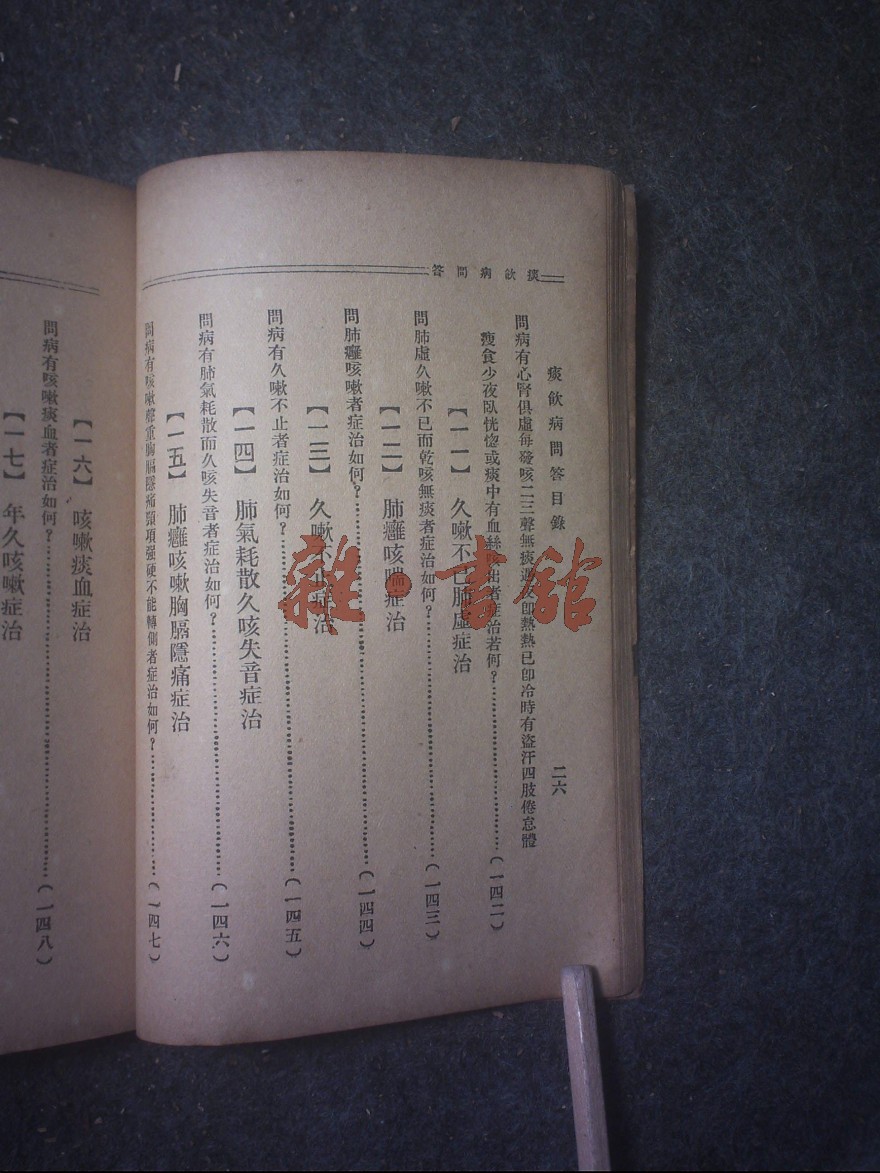 痰飲病問答
痰飲病問答目錄
二六
問病有心腎俱虛每發咳二三聲無痰遇夜卽熱熱已卽冷時有盜汗四肢倦怠體
瘦食少夜臥恍惚或痰中有血絲咳出者症治若何？(一四二)
【一一】 久嗽不已肺虛症治
問肺虛久嗽不已而乾咳無痰者症治如何？(一四三)
【一二】 肺癰咳喘症治
問肺癰咳嗽者症治如何？(一四四)
【一三】 久嗽不止症治
問病有久嗽不止者症治如何？(一四五)
【一四】 肺氣耗散久咳失音症治
問病有肺氣耗散而久咳失音者症治如何？(一四六)
【一五】 肺癰咳嗽胸膈隱痛症治
問病有咳嗽聲重胸膈隱痛頸項强硬不能轉側者症治如何？(一四七)
【一六】 咳嗽痰血症治
問病有咳嗽痰血者症治如何？(一四八)
【一七】 年久咳嗽症治
雜·書館